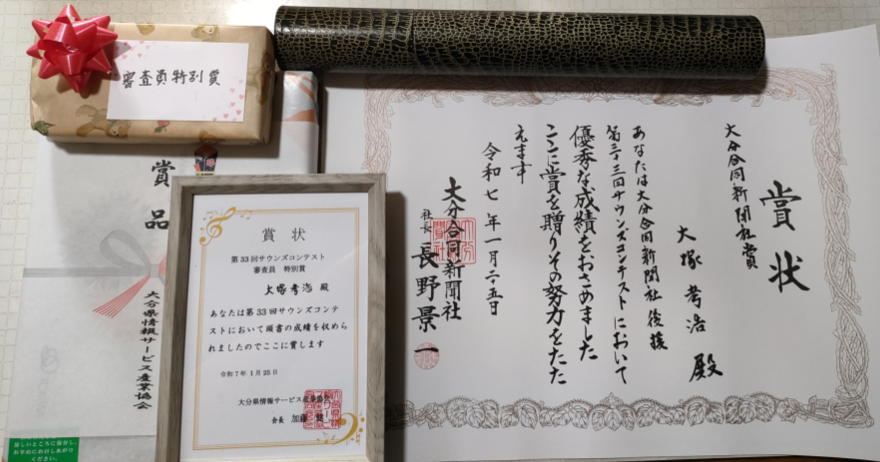 審査員特別賞
賞品
大分県情報サービス産業協会
賞状
第33回サウンズコンテスト
審査員 特別賞
大塚考浩 殿
あなたは第33回サウンズコンテ
ストにおいて頭書の成績を収めら
れましたのでここに賞します
令和7年1月25日
大分県情報サービス産業協会
会長 加藤
賞状
大分合同新聞社賞
大塚考浩 殿
あなたは大分合同新聞社後援
第三十三回サウンズコンテストにおいて
優秀な成績をおさめました
ここに賞を贈りその努力をたた
えます
令和七年一月二十五日
大分合同新聞社
社長 長野景一
涼しいところに保存し、
お早めにお召しあがり
ください。